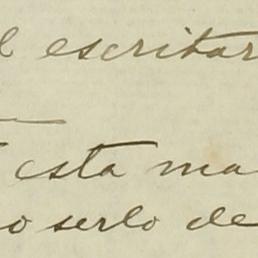 escritar
esta ma
o serlo de